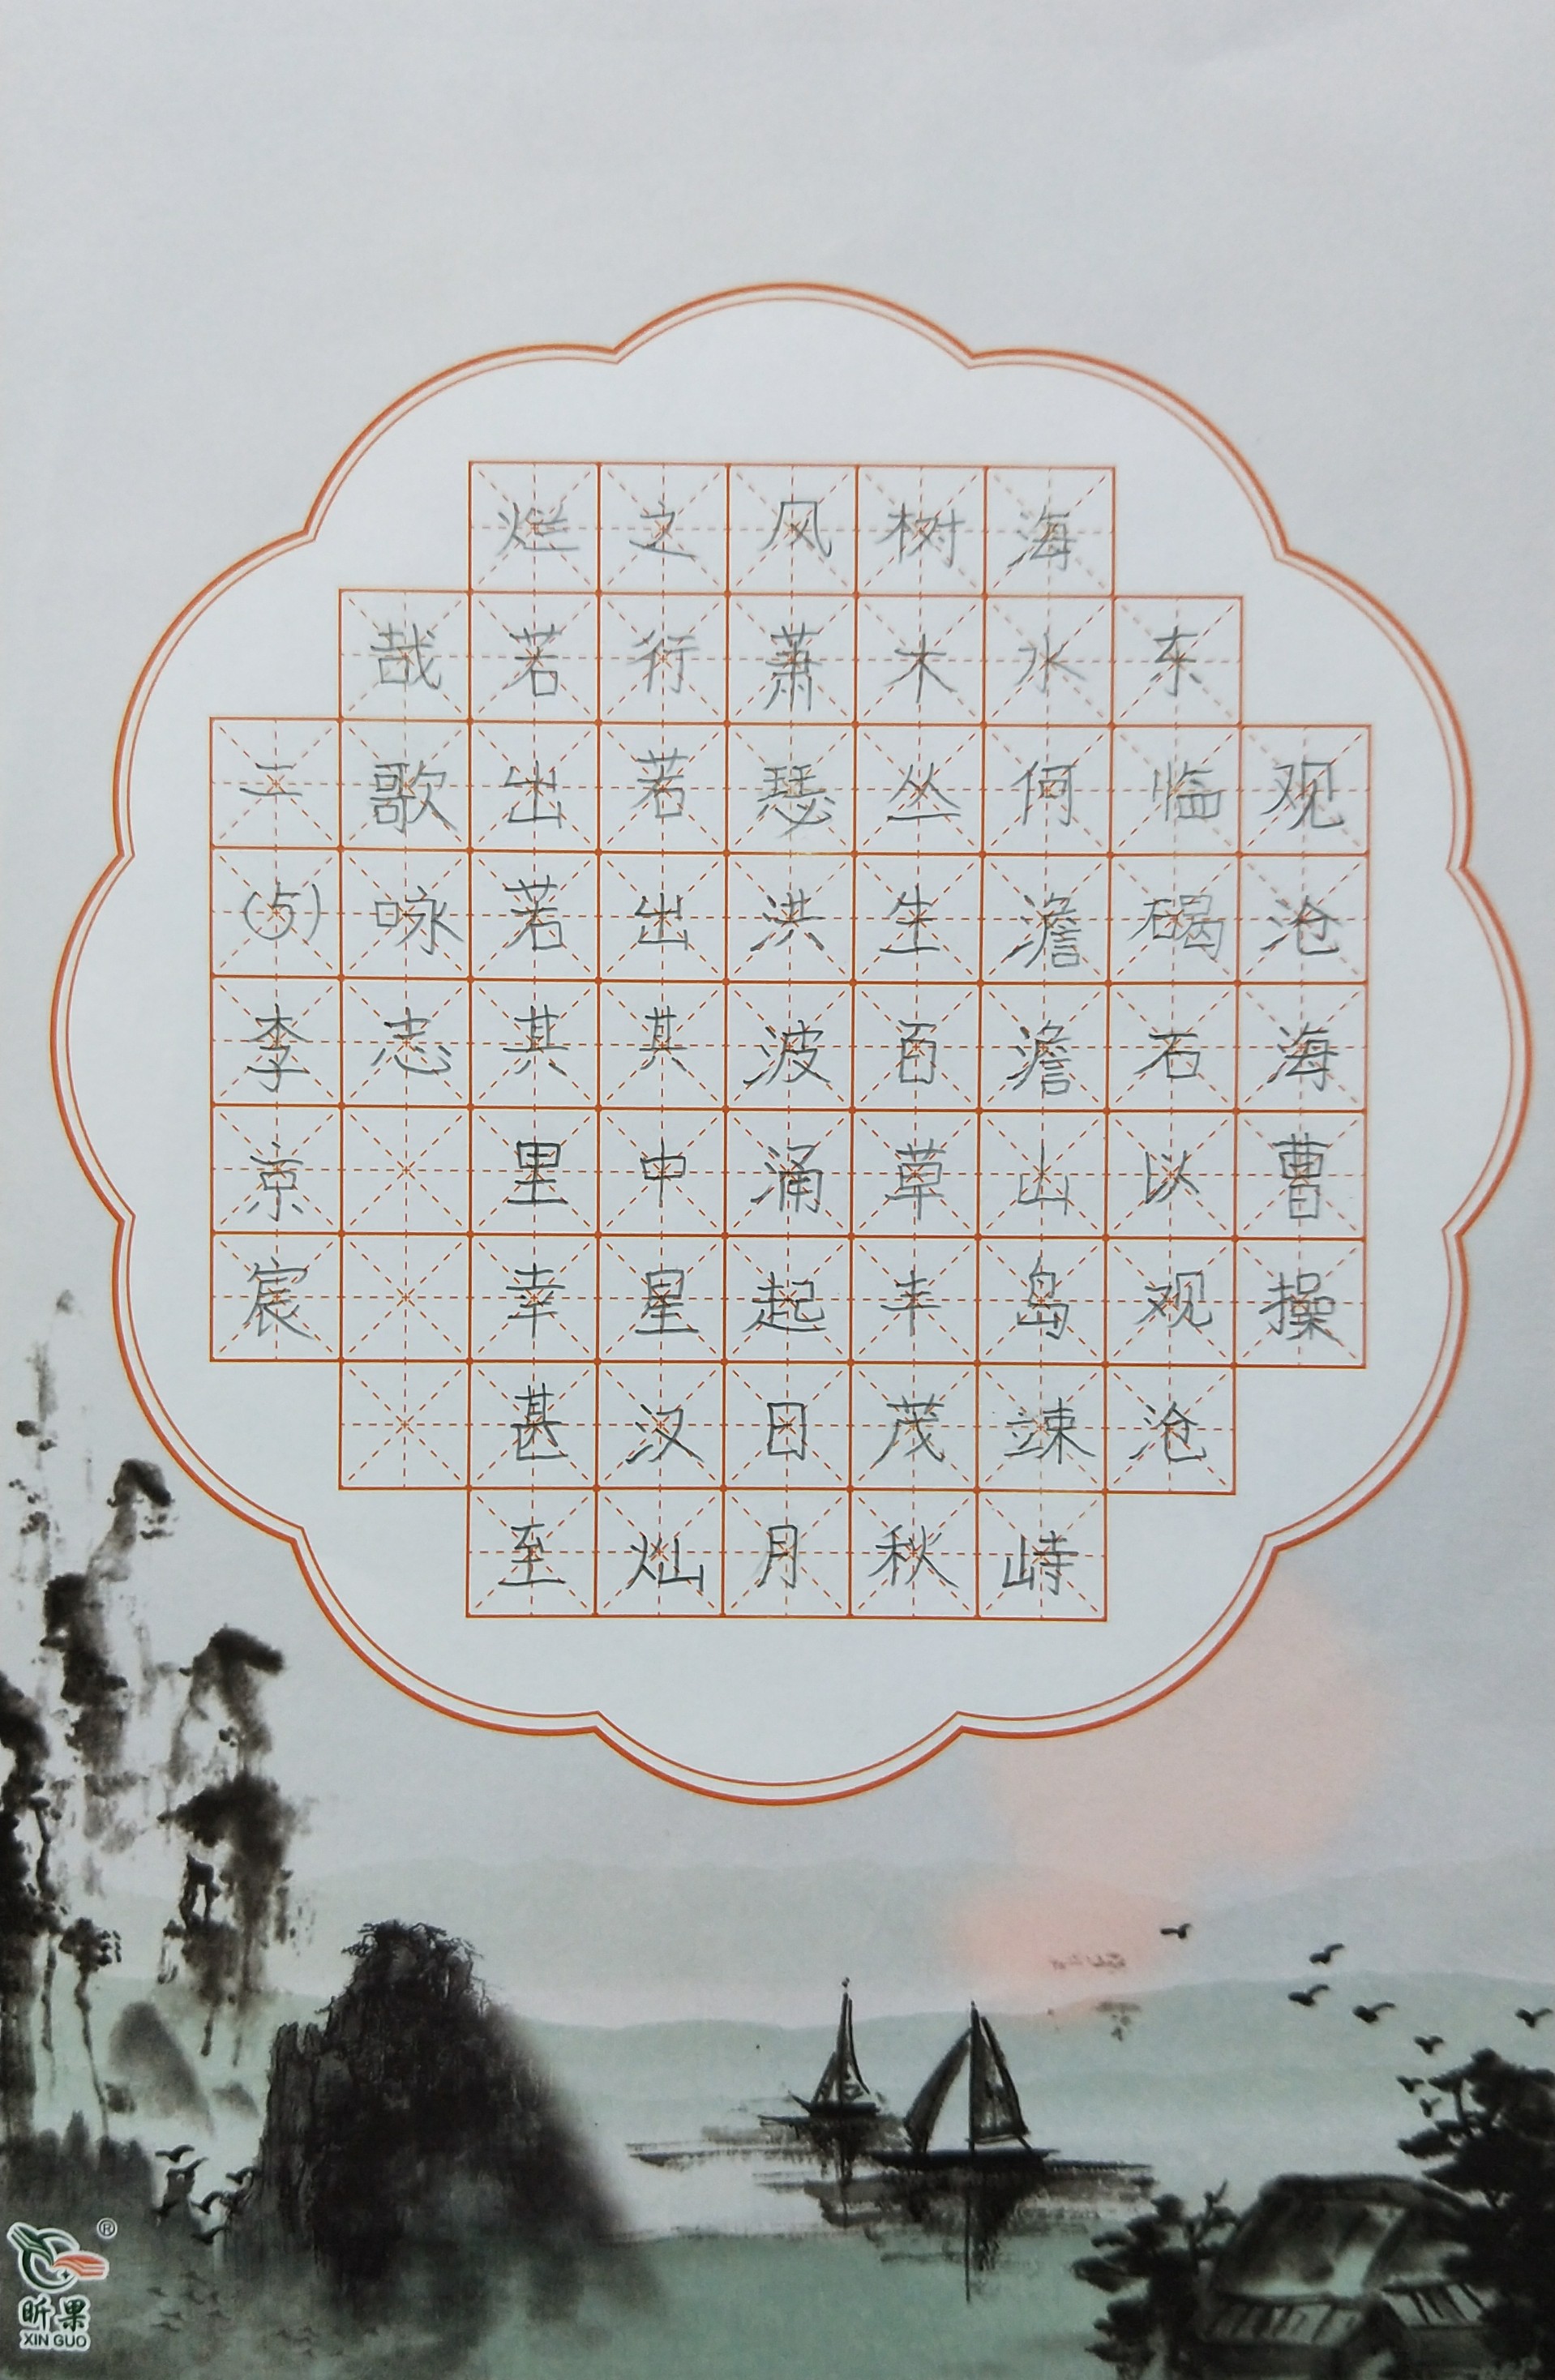 观沧海曹操
东临碣石以观沧
海水何澹澹山岛竦峙
树木丛生百草丰茂秋
风萧瑟洪波涌起日月
之行若出其中星汉灿
烂若出若其里幸甚至
哉歌咏志
二(5)李京宸
昕果
XIN GUO
®